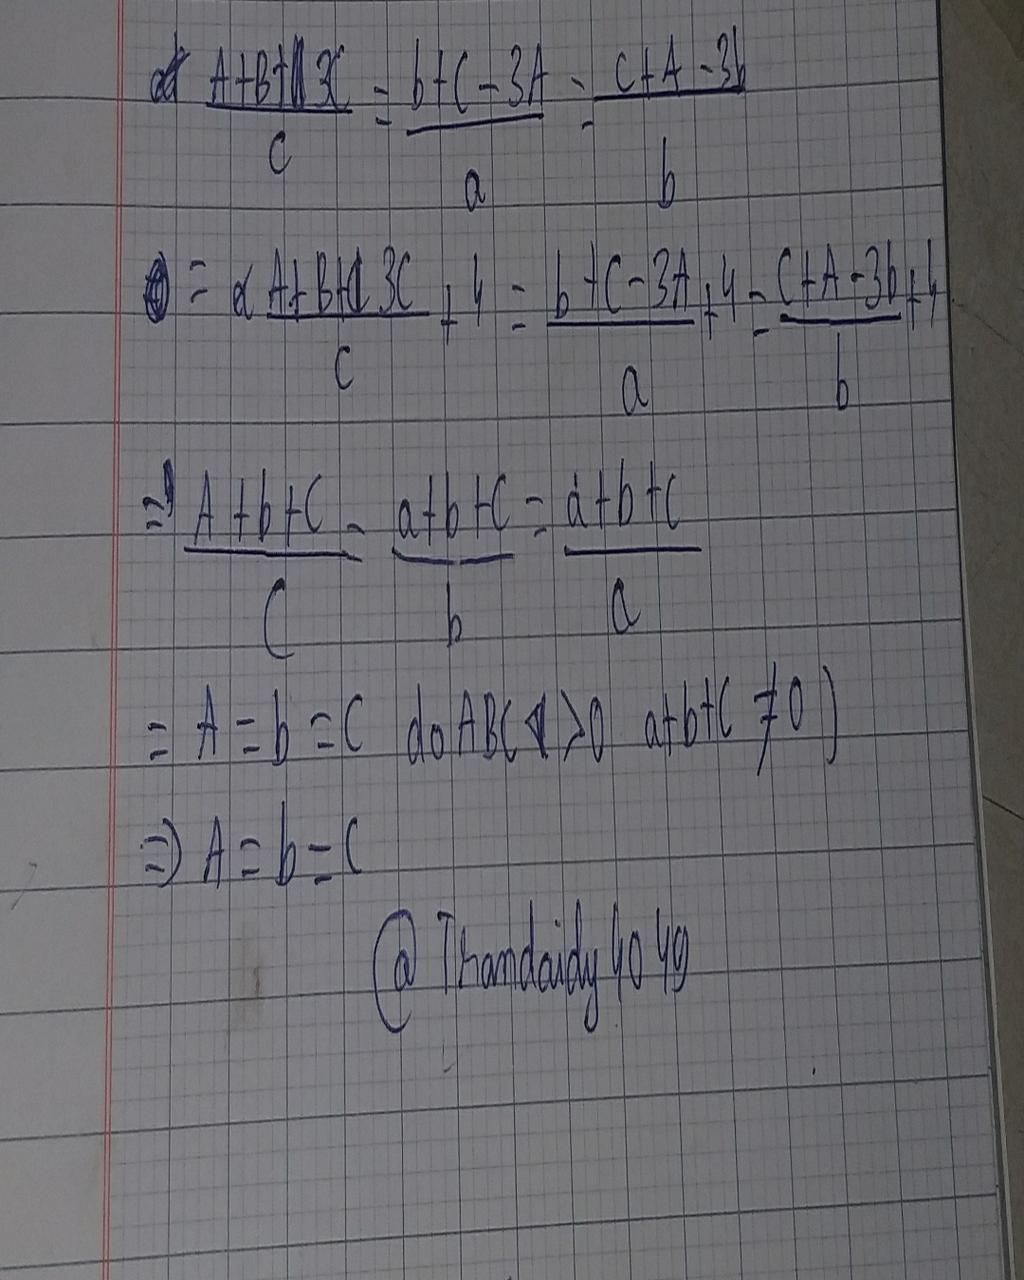 A+B+3C = b+C-3A = C+A-3b
c a b
= A+B+3C + 4 = b+C-3A + 4 = C+A-3b + 4
c a b
=> A+b+C = a+b+C = a+b+c
C b a
= A = b = C do ABC > 0 a+b+C ≠ 0)
=> A = b = C
@Thandaidy4049